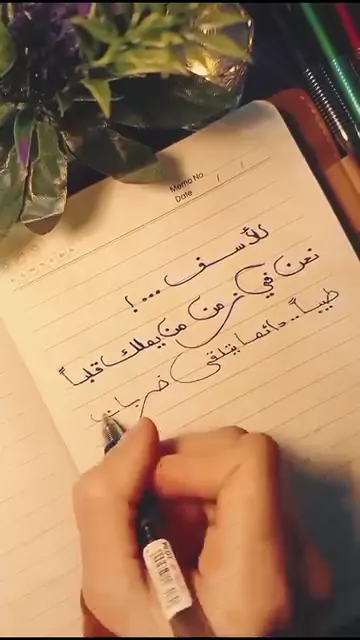 Memo No.
Date / /
للأسف ...!
نحن في زمن من يملك قلباً
طيباً.. دائما يتلقى ضربات
PILOT